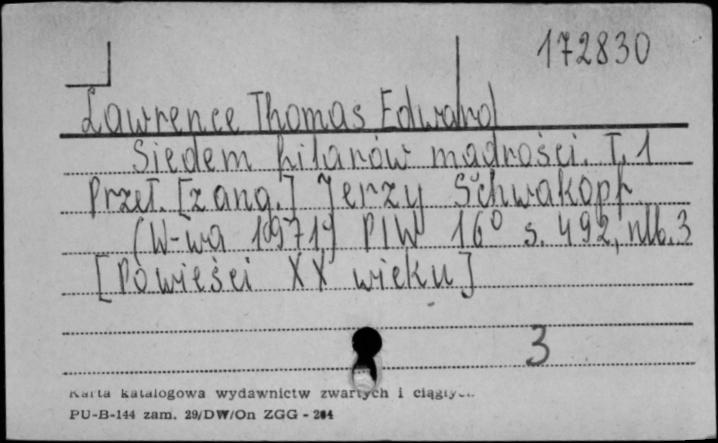 172830
Lawrence Thomas Edward
Siedem filarów mądrości. T. 1
Przeł. [z ang.] Jerzy Schwakopf.
(W-wa 1971) PIW 16° s. 492, nlb. 3
[Powieści XX wieku]
3
Karta katalogowa wydawnictw zwartych i ciągłych
PU-B-144 zam. 29/DW/On ZGG - 284